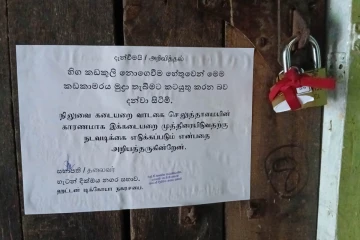 දැන්වීමයි / அறிவித்தல்
හිඟ කඩකුලි නොගෙවීම හේතුවෙන් මෙම
කඩකාමරය මුද්‍රා තැබීමට කටයුතු කරන බව
දන්වා සිටිමි.
நிலுவை கடைபறை வாடகை செலுத்தாமையின்
காரணமாக இக்கடையறை முத்திரையிடுவதற்கு
நடவடிக்கை எடுக்கப்படும் என்பதை
அறியத்தருகின்றேன்.
සභාපති / தலைவர்
හැටන් දික්ඔය නගර සභාව.
ஹட்டன் டிக்கோயா நகரசபை.